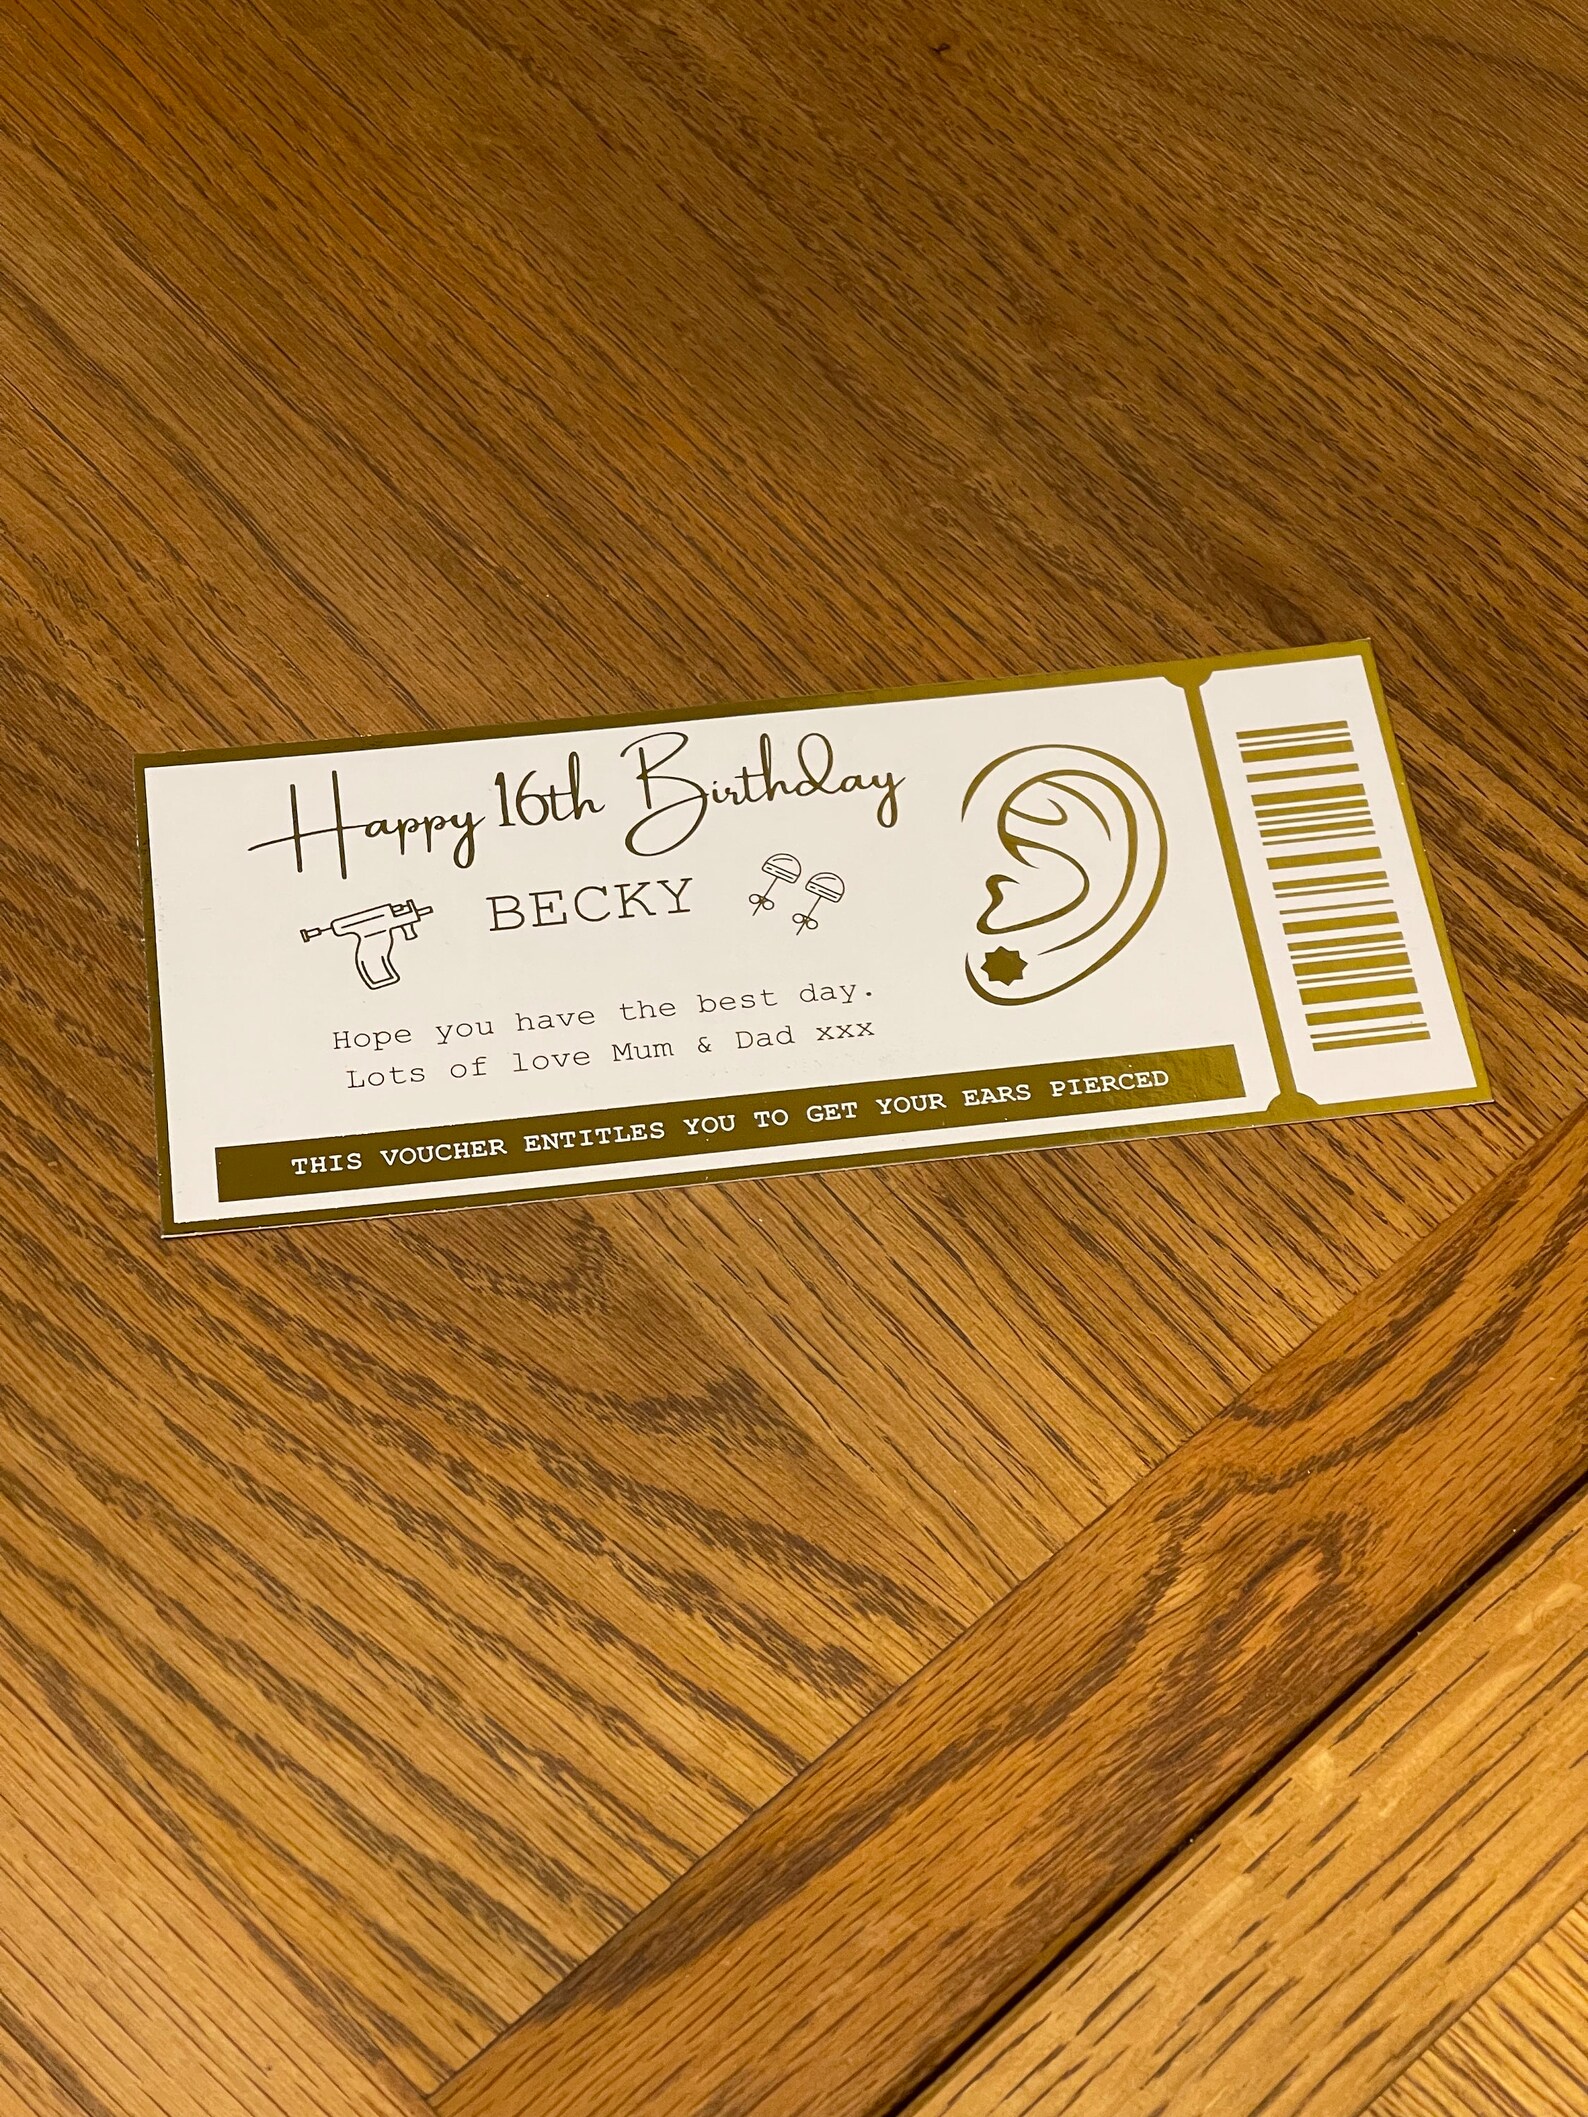 Happy 16th Birthday
BECKY
Hope you have the best day.
Lots of love Mum & Dad xxx
THIS VOUCHER ENTITLES YOU TO GET YOUR EARS PIERCED